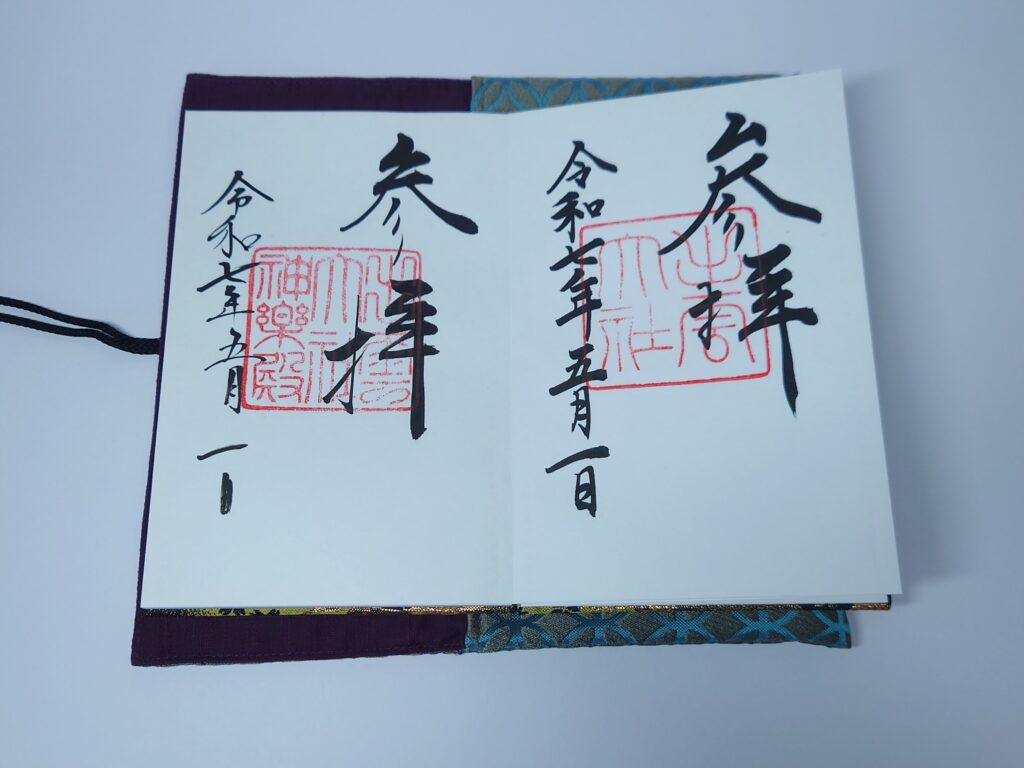 参拝
出雲
大社
令和七年五月一日
参拝
出雲
大社
神樂殿
令和七年五月一日